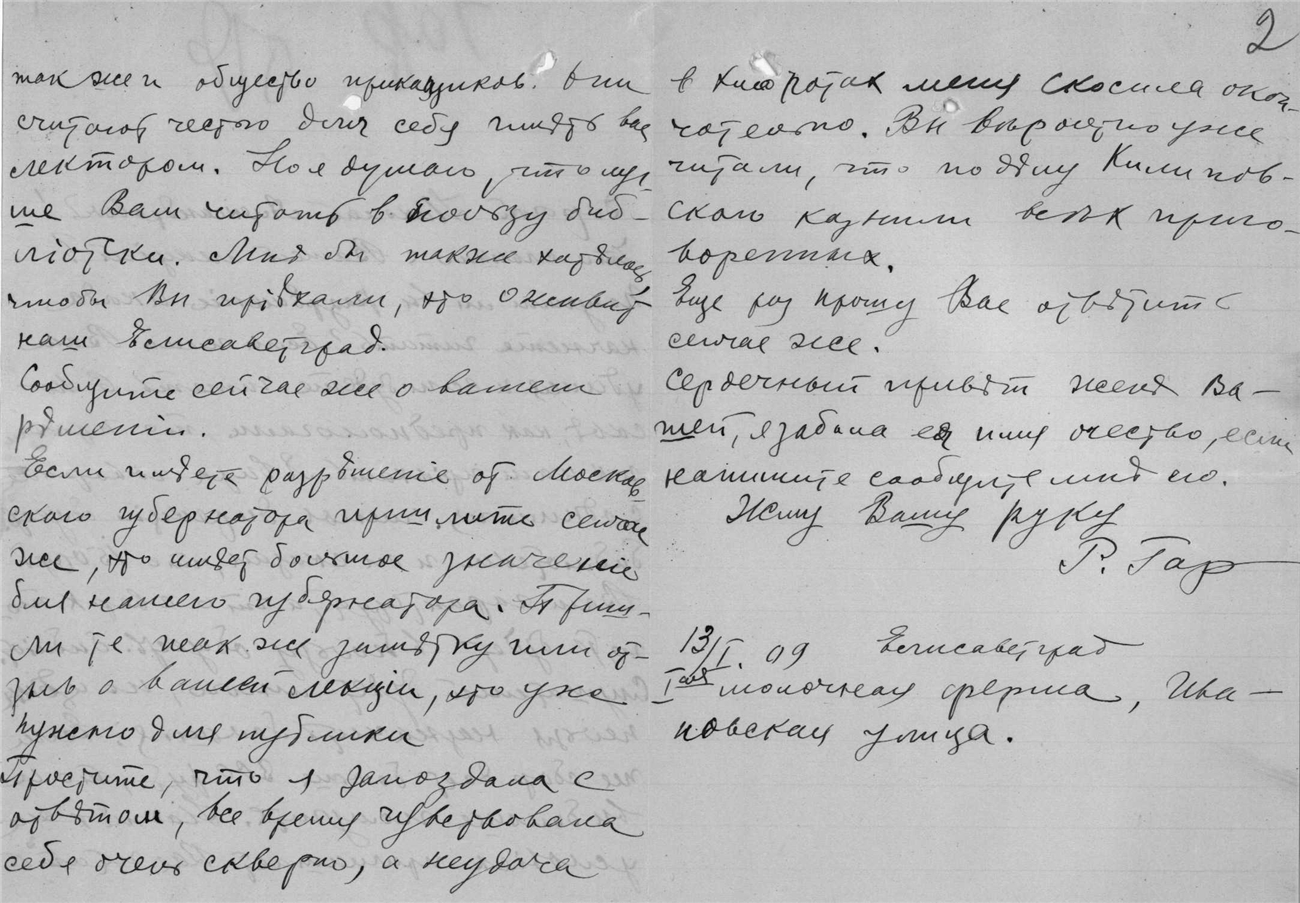 2
также и общество приказчиков. Они
считают честью для себя имѣть вас
лектором. Но я думаю, что луч-
ше Вам читать в пользу биб-
ліотеки. Мнѣ бы также хотѣлось,
чтобы Вы пріѣхали, это оживит
наш Елисаветград.
Сообщите сейчас же о вашем
рѣшеніи.
Если имѣете разрѣшеніе от Москов-
ского губернатора пришлите сейчас
же, это имѣет большое значеніе
для нашего губернатора. Приш-
лите так же замѣтку или от-
зыв о вашей лекціи, это уже
нужно для публики
Простите, что я запоздала с
отвѣтом, все время чувствовала
себя очень скверно, а неудача
в меня скосила окон-
чательно. Вы вѣроятно уже
читали, что по дѣлу
ского казнили всѣх приго-
воренных.
Еще раз прошу Вас отвѣтить
сейчас же.
Сердечный привѣт женѣ Ва-
шей, я забыла ея имя очество, если
напишите сообщите мнѣ его.
Жму Вашу руку
Р. Гар
13/I. 09 Елисаветград
Iая молочная ферма, Ива-
новская улица.